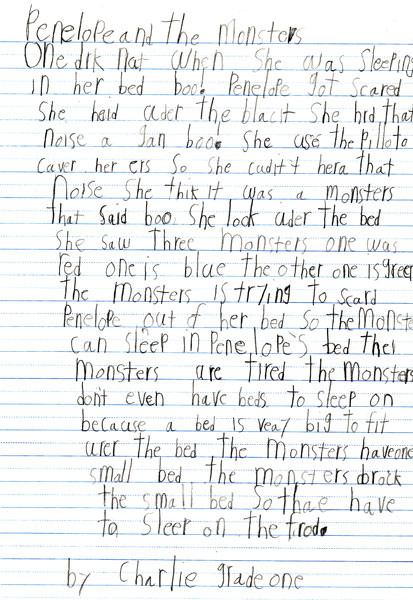 Penelope and the Monsters
One drk nat when She was Sleeping
in her bed boo! Penelope got scared
She heid uder the blacit She hrd that
noise a gan boo. She use the pilloto
caver her ers so she cudit't hera that
Noise She thik it was a monsters
that said boo She look uder the bed
She saw three monsters one was
red one is blue the other one is green
the monsters is trying to scard
Penelope out of her bed so the Monsters
can sleep in Penelope's bed ther
monsters are tired the monsters
don't even have beds to sleep on
because a bed is veay big to fit
urer the bed the monsters have one
small bed the monsters brock
the small bed So thae have
to Sleep on the frod.
by Charlie grade one